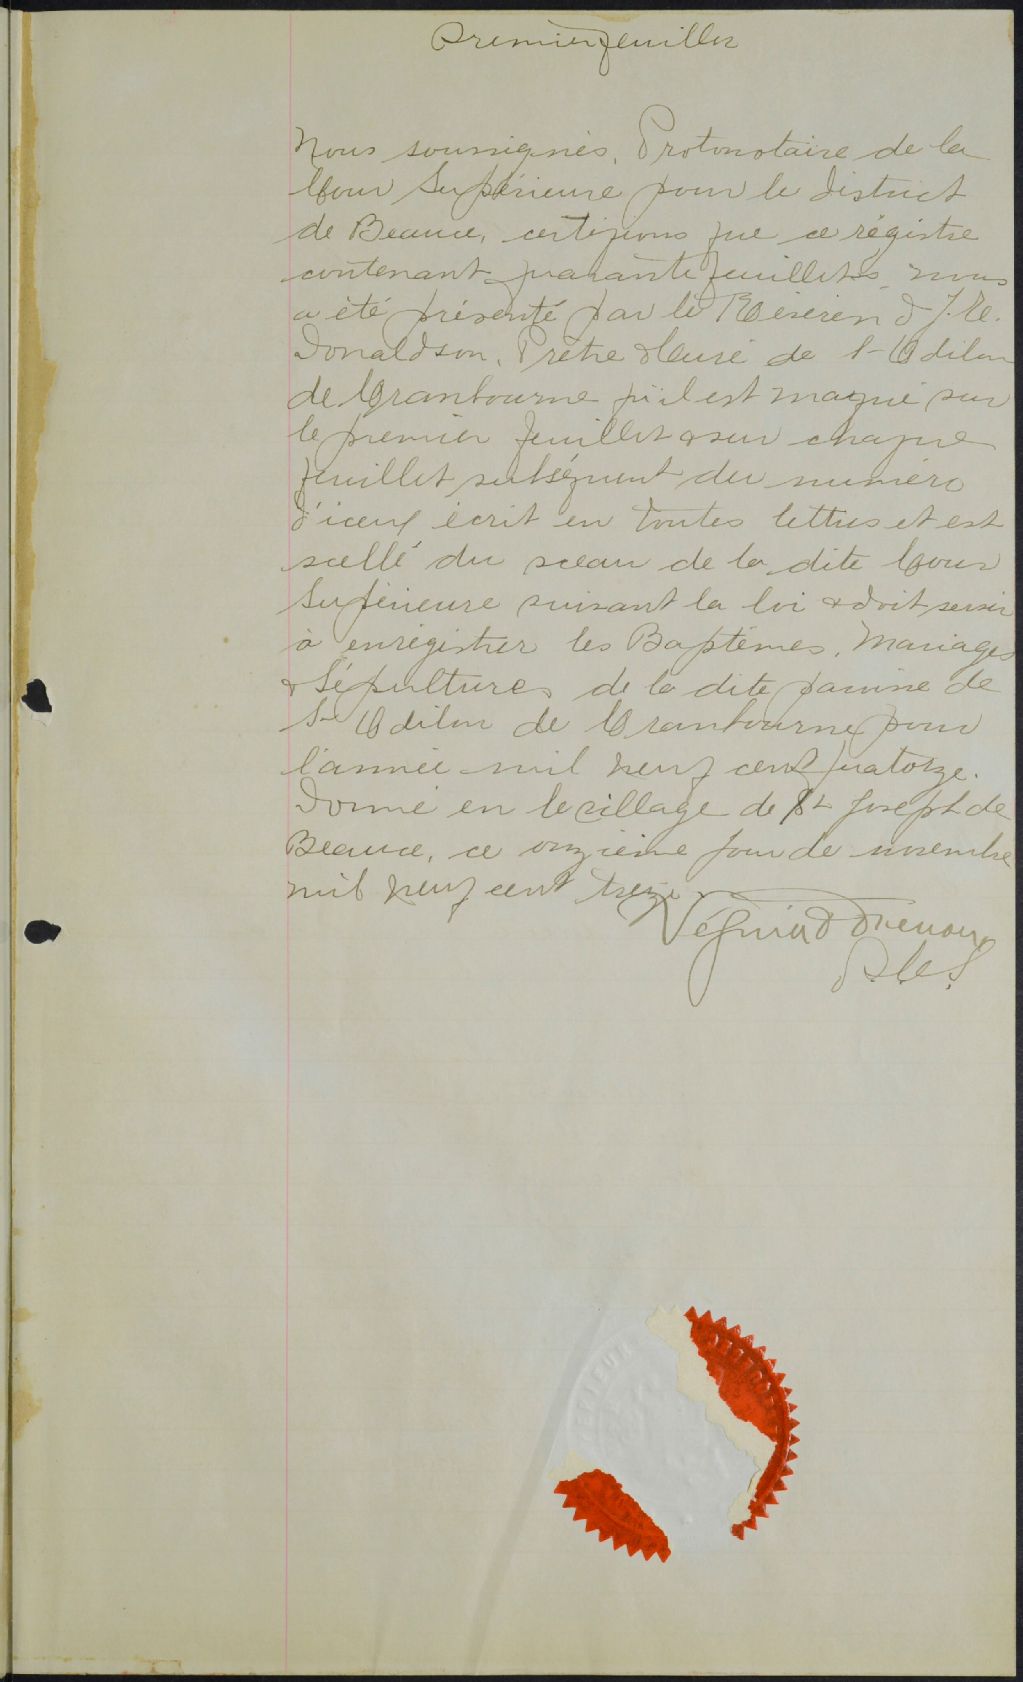 Premier feuillet
Nous soussignés, Protonotaire de la
Cour Supérieure pour le district
de Beauce, certifions que ce régistre
contenant quarante feuillets nous
a été présenté par le Révérend J. E.
Donaldson, Prêtre & Curé de St-Odilon
de Cranbourne qu'il est marqué sur
le premier feuillet & sur chaque
feuillet subséquent du numéro
d'iceux écrit en toutes lettres et est
scellé du sceau de la dite Cour
Supérieure suivant la loi & doit servir
à enrégistrer les Baptêmes, Mariages
& Sépultures de la dite paroisse de
St Odilon de Cranbourne pour
l'année mil neuf cent quatorze.
Donné en le village de St Joseph de
Beauce, ce onzième jour de novembre
mil neuf cent treize
P.C.S.